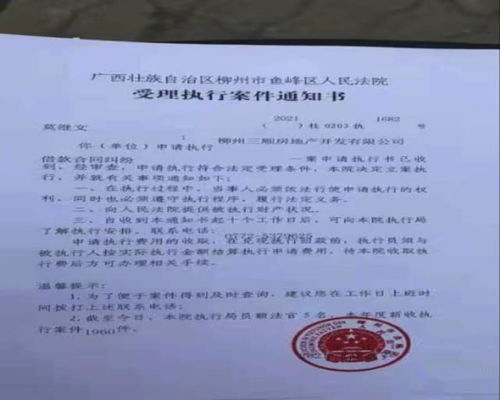 广西壮族自治区柳州市鱼峰区人民法院
受理执行案件通知书
2021 1682
( )桂0203执 号
莫继文
:
柳州三顺房地产开发有限公司
你(单位)申请执行
借款合同纠纷 一案申请执行书已收
到。经审查,申请执行符合法定受理条件,本院决定立案执
行,并就有关事项通知如下:
一、在执行过程中,当事人必须依法行使申请执行的权
利,同时也必须遵守执行程序,履行法定义务。
二、向人民法院提供被执行财产状况。
三、自收到本通知书起十个工作日后,可向本院执行局
了解执行安排。联系电话:
0772-5379625
申请执行费用的收取,在兑现执行回款前,执行员须与
被执行人按实际执行金额结算执行申请费用,待本院收取执
行费后方可办理相关手续。
温馨提示:
1、为了便于案件得到及时查询,建议您在工作日上班时
间拨打上述联系电话;
2、截至今日,本院执行局员额法官5名,本年度新收执
行案件1960件。